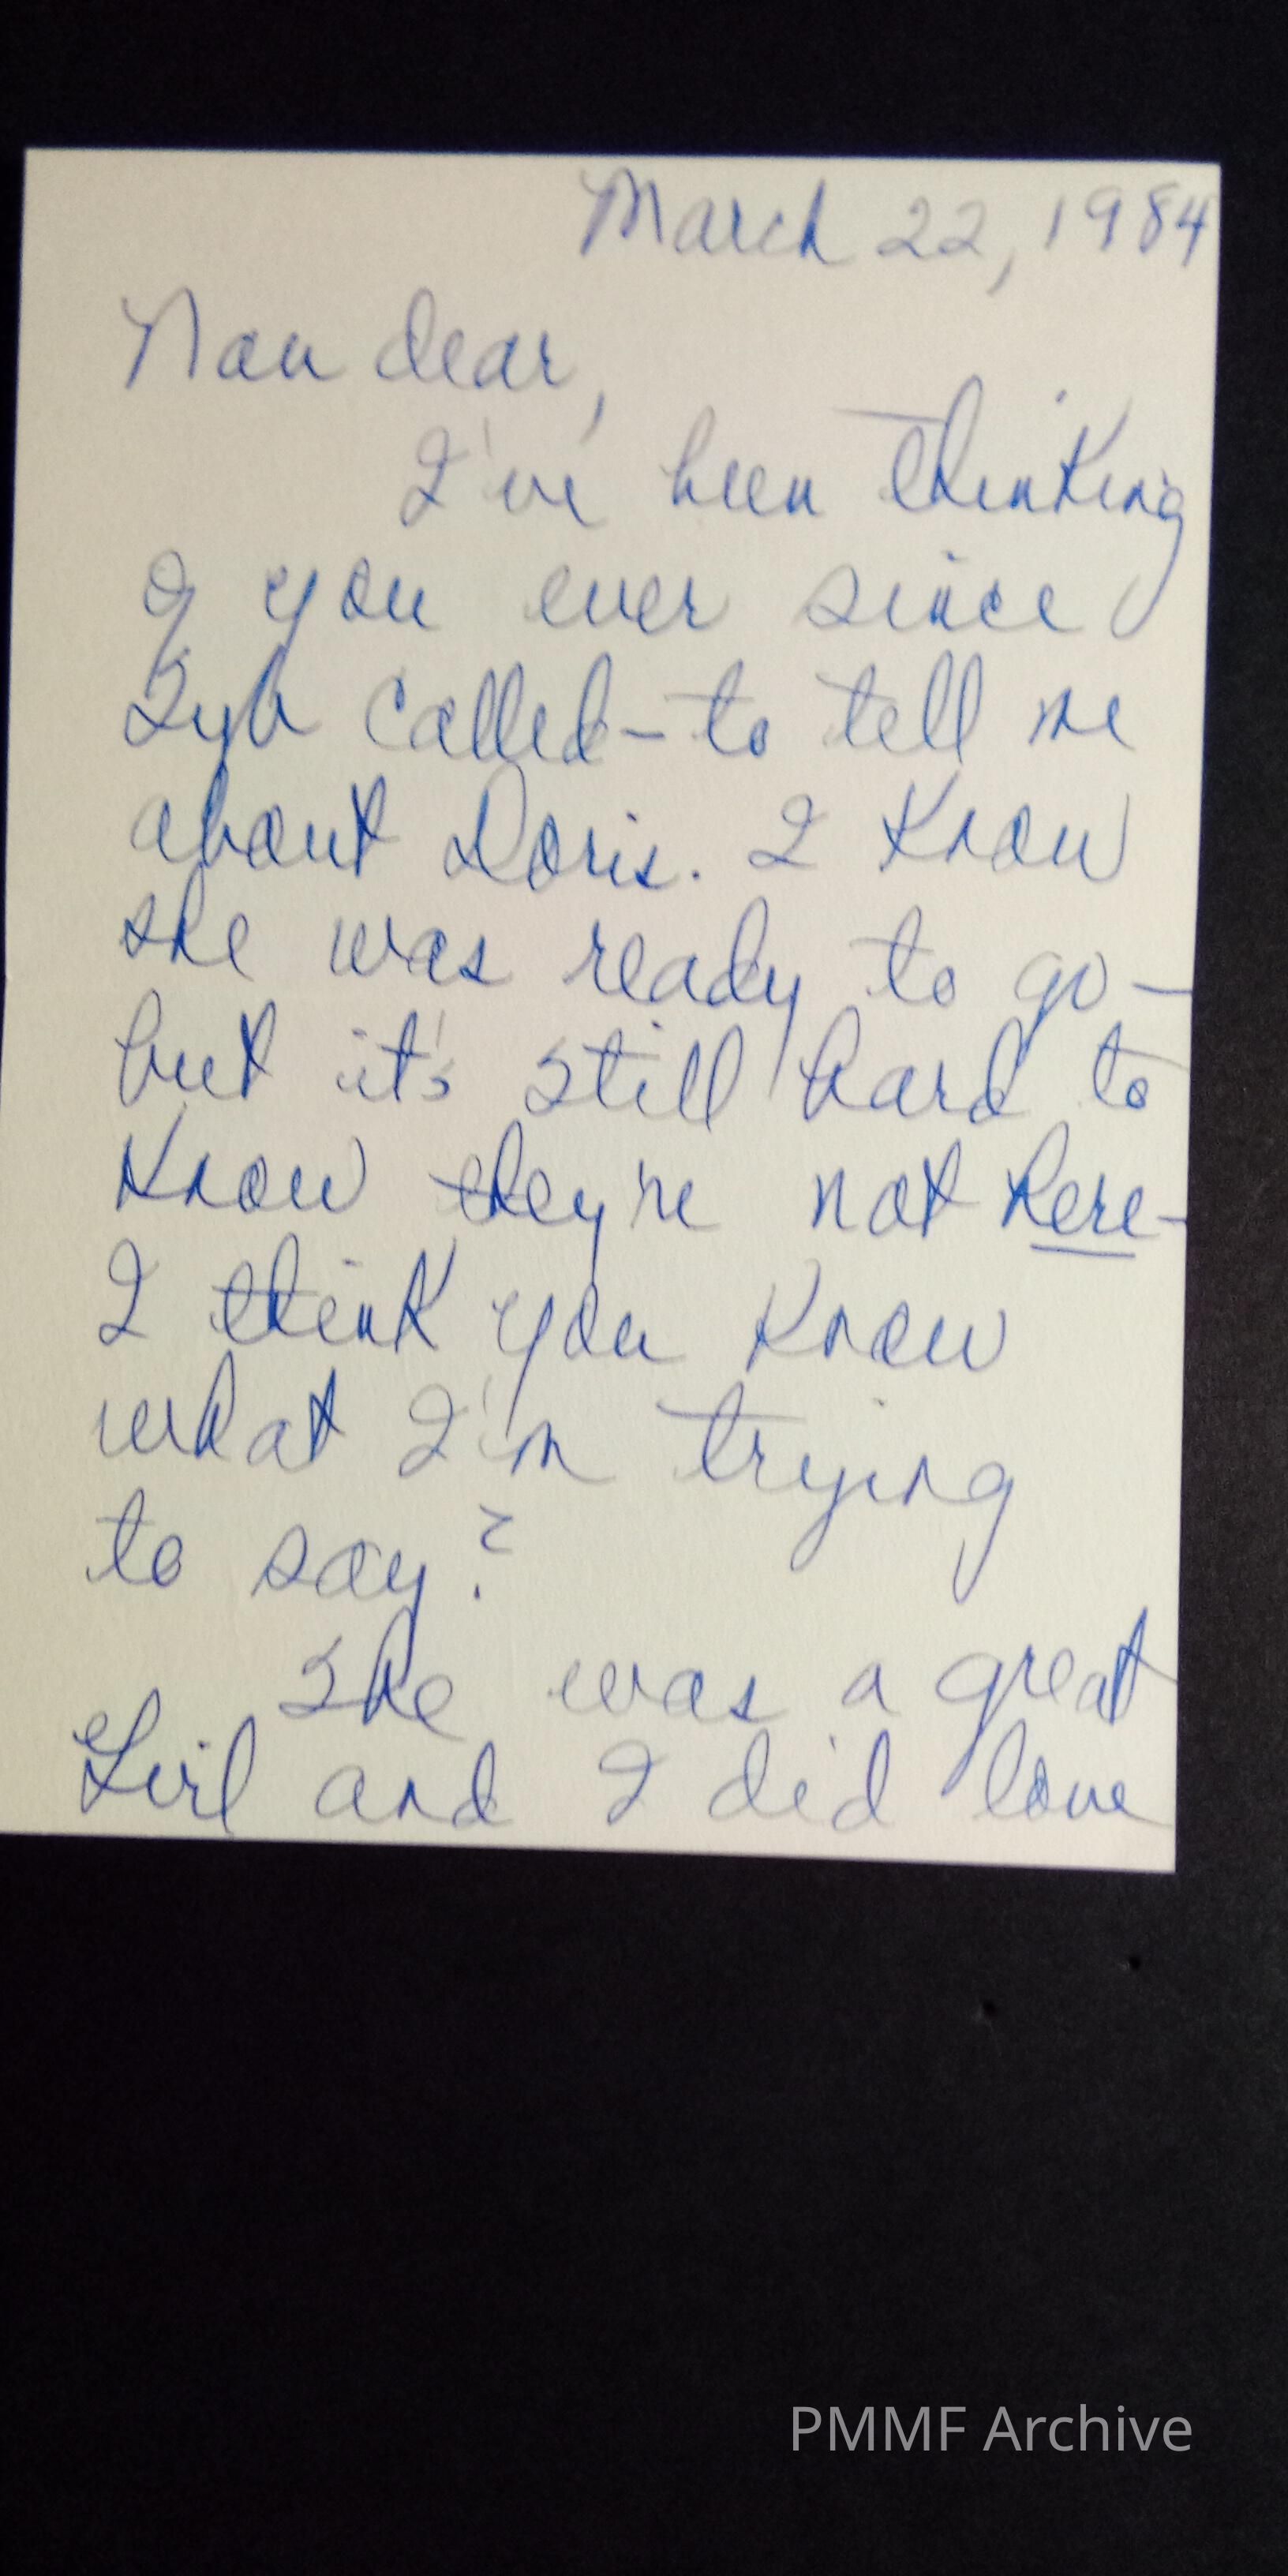 March 22, 1984
Nan dear,
I've been thinking
of you ever since
Syb called - to tell me
about Doris. I know
she was ready to go -
but it's still hard to
know they're not here -
I think you know
what I'm trying
to say?
She was a great
Girl and I did love
PMMF Archive